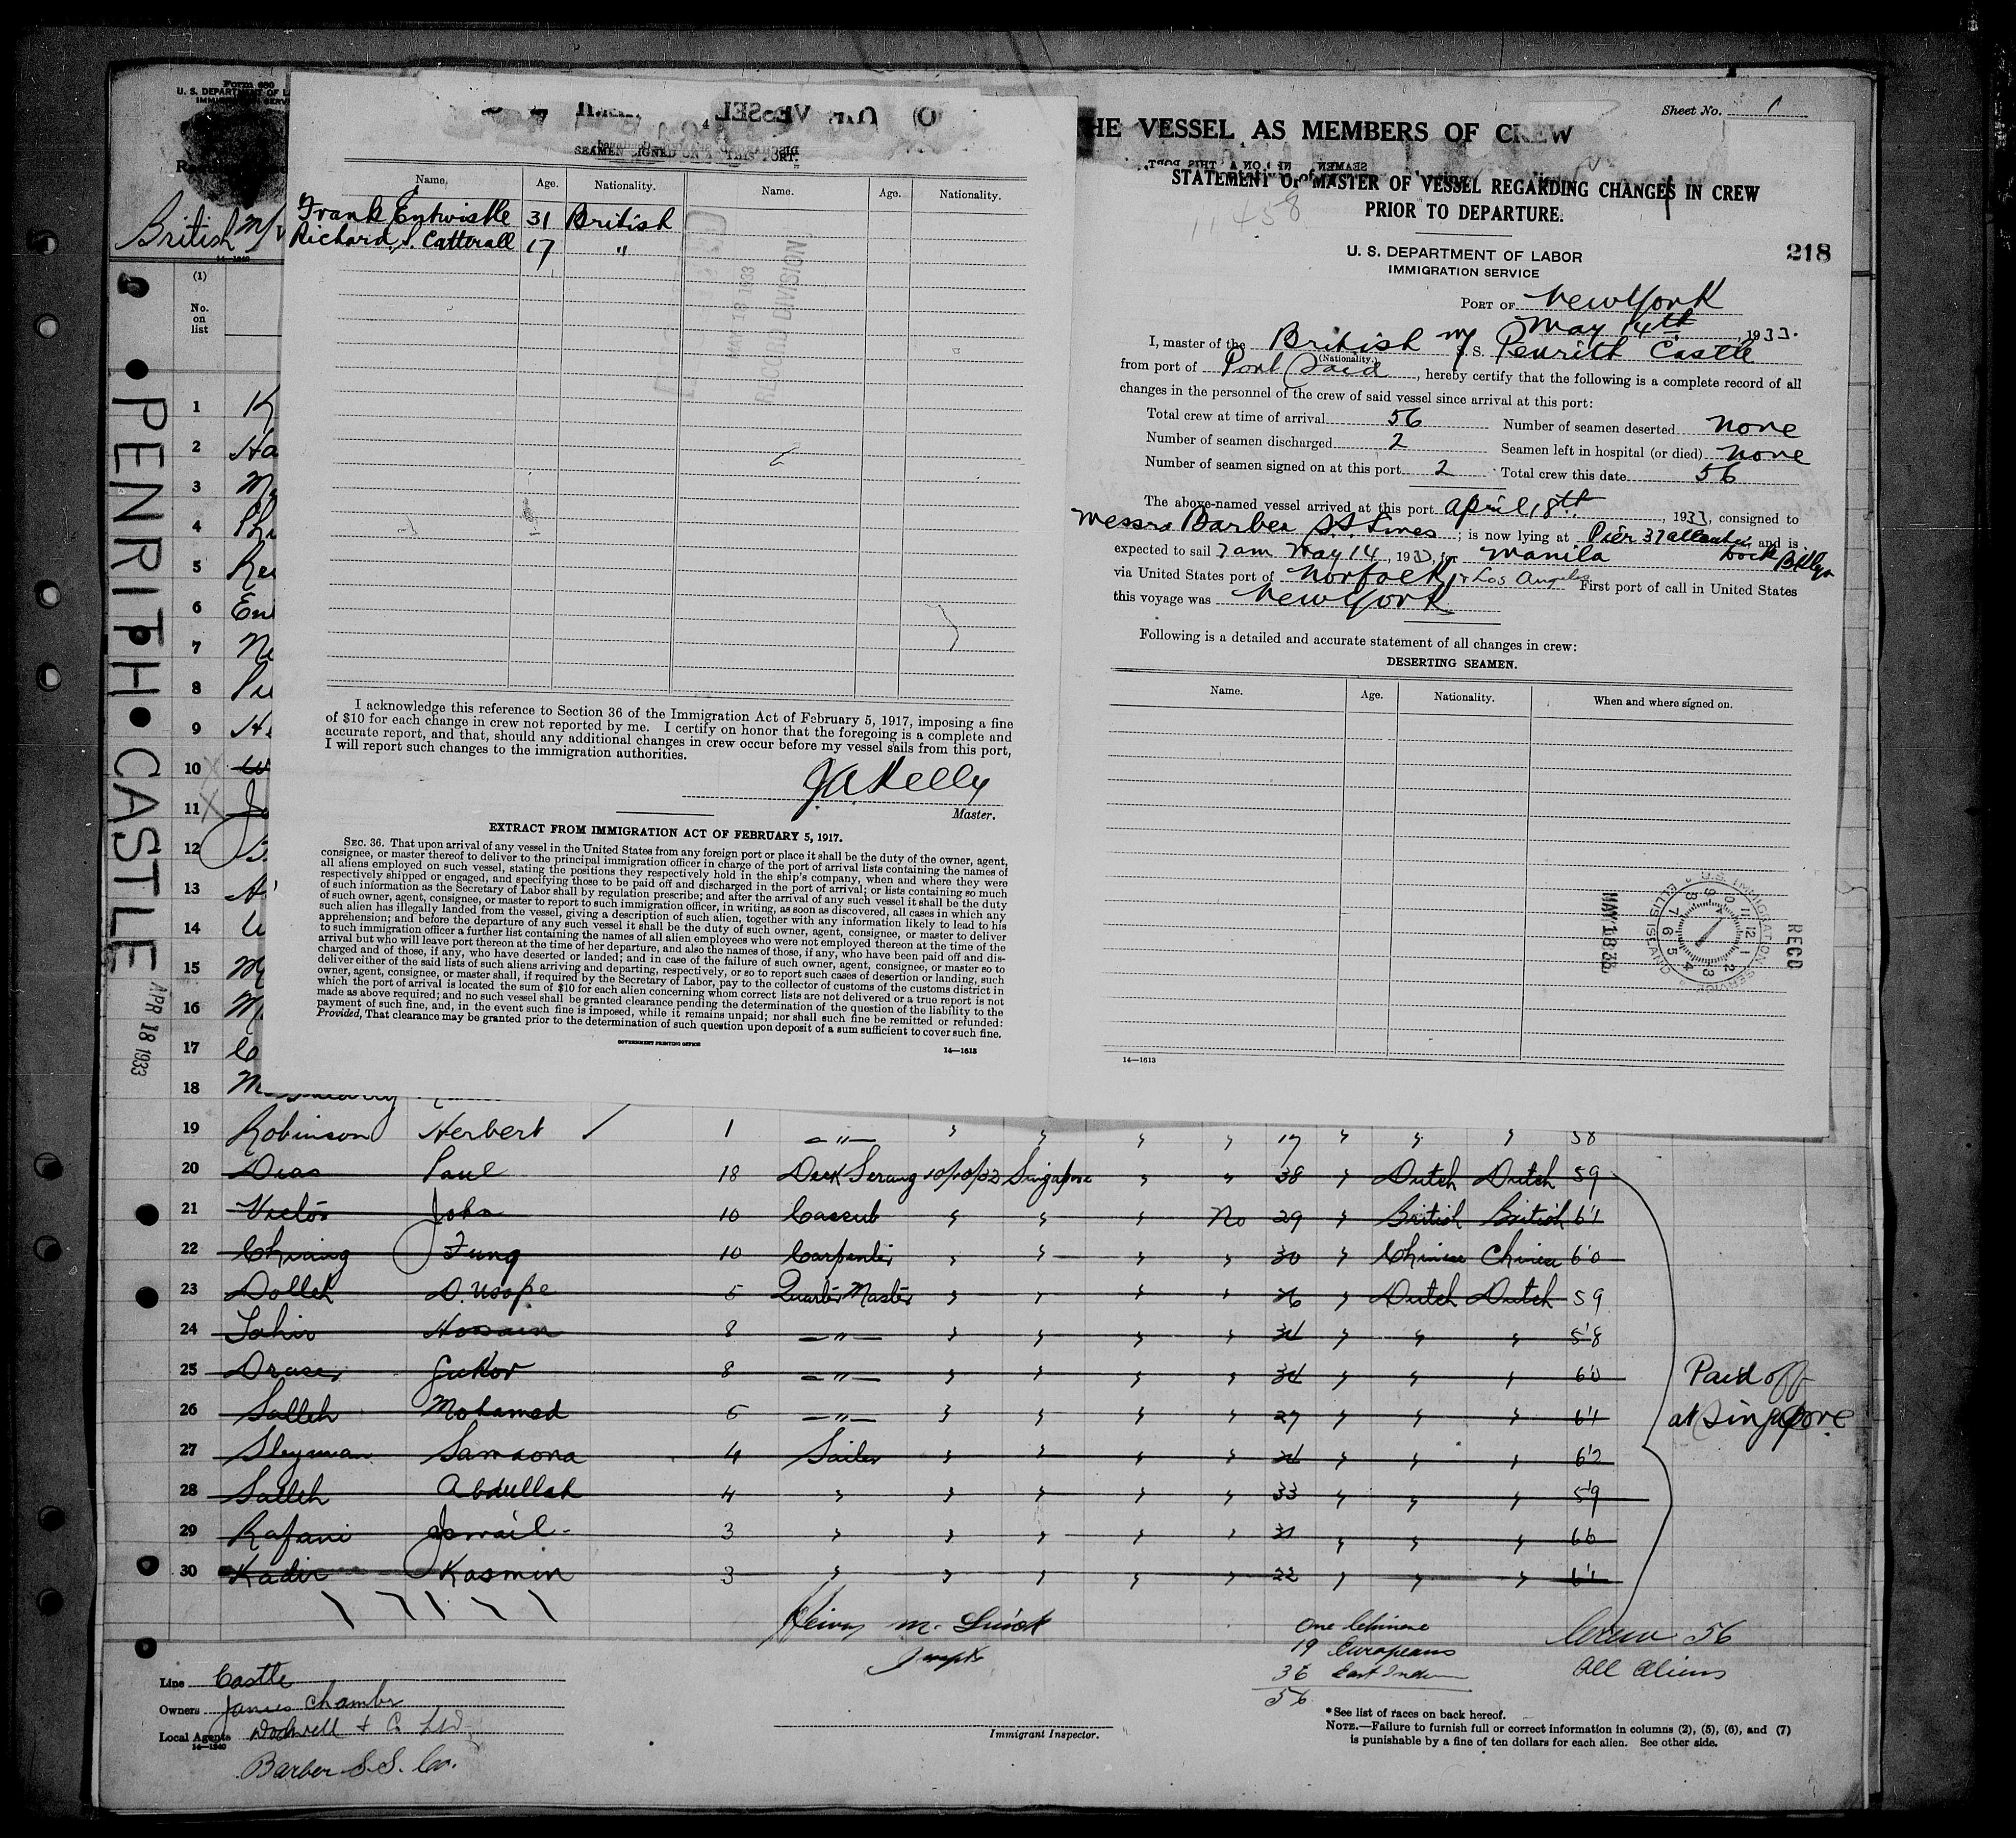 Form 680
U. S. DEPARTMENT OF L
IMMIGRATION SERV
British M/V
14—1240
(1)
No.
on
list
PENRITH CASTLE
APR 18 1933
SEAMEN SIGNED ON AT THIS PORT.
Name. Age. Nationality. Name. Age. Nationality.
Frank Entwistle 31 British
Richard S. Catterall 17 "
MAY 18 1933
RECORD DIVISION
I acknowledge this reference to Section 36 of the Immigration Act of February 5, 1917, imposing a fine
of $10 for each change in crew not reported by me. I certify on honor that the foregoing is a complete and
accurate report, and that, should any additional changes in crew occur before my vessel sails from this port,
I will report such changes to the immigration authorities.
J. A. Kelly
Master.
EXTRACT FROM IMMIGRATION ACT OF FEBRUARY 5, 1917.
SEC. 36. That upon arrival of any vessel in the United States from any foreign port or place it shall be the duty of the owner, agent,
consignee, or master thereof to deliver to the principal immigration officer in charge of the port of arrival lists containing the names of
all aliens employed on such vessel, stating the positions they respectively hold in the ship's company, when and where they were
respectively shipped or engaged, and specifying those to be paid off and discharged in the port of arrival; or lists containing so much
of such information as the Secretary of Labor shall by regulation prescribe; and after the arrival of any such vessel it shall be the duty
of such owner, agent, consignee, or master to report to such immigration officer, in writing, as soon as discovered, all cases in which any
such alien has illegally landed from the vessel, giving a description of such alien, together with any information likely to lead to his
apprehension; and before the departure of any such vessel it shall be the duty of such owner, agent, consignee, or master to deliver
to such immigration officer a further list containing the names of all alien employees who were not employed thereon at the time of the
arrival but who will leave port thereon at the time of her departure, and also the names of those, if any, who have been paid off and dis-
charged and of those, if any, who have deserted or landed; and in case of the failure of such owner, agent, consignee, or master so to
deliver either of the said lists of such aliens arriving and departing, respectively, or so to report such cases of desertion or landing, such
owner, agent, consignee, or master shall, if required by the Secretary of Labor, pay to the collector of customs of the customs district in
which the port of arrival is located the sum of $10 for each alien concerning whom correct lists are not delivered or a true report is not
made as above required; and no such vessel shall be granted clearance pending the determination of the question of the liability to the
payment of such fine, and, in the event such fine is imposed, while it remains unpaid; nor shall such fine be remitted or refunded:
Provided, That clearance may be granted prior to the determination of such question upon deposit of a sum sufficient to cover such fine.
GOVERNMENT PRINTING OFFICE
14—1613
Sheet No. 1
HE VESSEL AS MEMBERS OF CREW
STATEMENT OF MASTER OF VESSEL REGARDING CHANGES IN CREW
PRIOR TO DEPARTURE.
11458
U. S. DEPARTMENT OF LABOR
218
IMMIGRATION SERVICE
PORT OF New York
May 14th, 1933.
I, master of the British M/S. S. Penrith Castle
(Nationality.)
from port of Port Said, hereby certify that the following is a complete record of all
changes in the personnel of the crew of said vessel since arrival at this port:
Total crew at time of arrival 56 Number of seamen deserted none
Number of seamen discharged 2 Seamen left in hospital (or died) none
Number of seamen signed on at this port 2 Total crew this date 56
The above-named vessel arrived at this port April 18th, 1933, consigned to
Messrs Barber S.S. Lines; is now lying at Pier 37 Atlantic Dock Bklyn and is
expected to sail 7 am May 14, 1933, for Manila
via United States port of Norfolk, + Los Angeles First port of call in United States
this voyage was New York
Following is a detailed and accurate statement of all changes in crew:
DESERTING SEAMEN.
Name. Age. Nationality. When and where signed on.
MAY 18 33
U.S. IMMIGRATION SERVICE ELLIS ISLAND
RECD
14—1613
1 K
2 Ha
3 M
4
5
6
7
8
9
10
11
12
13
14
15
16
17
18
19 Robinson Herbert 1 — " — 17 58
20 Dias Paul 18 Deck Serang 10/10/32 Singapore " " 38 " Dutch Dutch 59
21 Victor John 10 Cassub " " " No 29 " British British 61
22 Chiang Fung 10 Carpenter " " " " 30 " Chinese Chinese 60
23 Dollek D. Usope 5 Quarter Master " " " " 26 " Dutch Dutch 59
24 Tahir Hossain 8 — " — 58
25 8 — " — 60
26 Salleh Mohamed 5 — " — " " " " 27 " " " 61
27 Sleyman Samsona 4 Sailor 62
28 Salleh Abdullah 4 " " " " " 33 " " " 59
29 Rafani Ismail 3 " " " " " 31 " " " 60
30 Kadir Kasmin 3 " " " " " 22 " " " 61
Paid off
at Singapore
One Chinese
19 Europeans
36 East Indian
56
Crew 56
All Aliens
Line Castle
Owners James Chambers
Local Agents Dodwell & Co Ltd
14—1240
Barber S.S. Co.
Immigrant Inspector.
*See list of races on back hereof.
NOTE.—Failure to furnish full or correct information in columns (2), (5), (6), and (7)
is punishable by a fine of ten dollars for each alien. See other side.